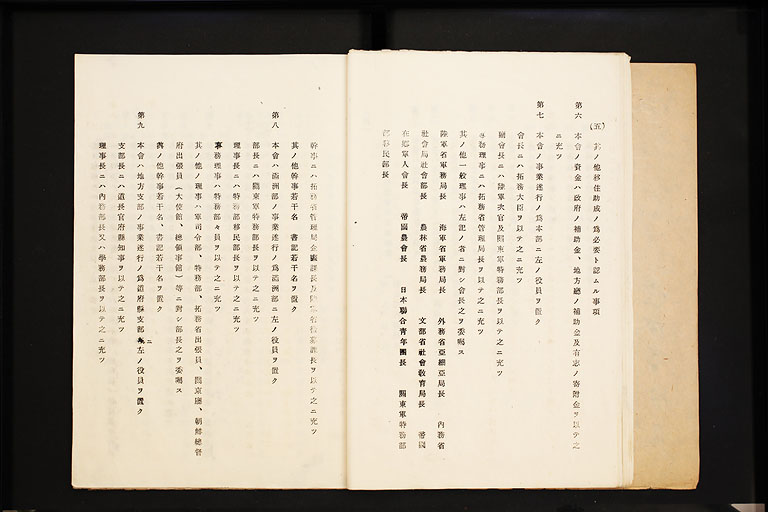 (五) 其ノ他移住助成ノ爲必要ト認ムル事項
第六 本會ノ資金ハ政府ノ補助金、地方廳ノ補助金及有志ノ寄附金ヲ以テ之
ニ充ツ
第七 本會ノ事業遂行ノ爲本部ニ左ノ役員ヲ置ク
會長ニハ拓務大臣ヲ以テ之ニ充ツ
副會長ニハ陸軍次官及關東軍特務部長ヲ以テ之ニ充ツ
專務理事ニハ拓務省管理局長ヲ以テ之ニ充ツ
其ノ他一般理事ハ左記ノ者ニ對シ會長之ヲ委囑ス
陸軍省軍務局長 海軍省軍務局長 外務省亞細亞局長 內務省
社會局社會部長 農林省農務局長 文部省社會敎育局長 帝國
在鄕軍人會長 帝國農會長 日本聯合靑年團長 關東軍特務部
部移民部長
幹事ニハ拓務省管理局企畫課長及陸軍省 課長ヲ以テ之ニ充ツ
其ノ他幹事若干名 書記若干名ヲ置ク
第八 本會ハ滿洲部ノ事業遂行ノ爲滿洲部ニ左ノ役員ヲ置ク
部長ニハ關東軍特務部長ヲ以テ之ニ充ツ
理事長ニハ特務部移民部長ヲ以テ之ニ充ツ
專務理事ハ特務部々員ヲ以テ之ニ充ツ
其ノ他ノ理事ハ軍司令部、特務部、拓務省出張員、關東廳、朝鮮總督
府出張員(大使館、總領事館)等ニ對シ部長之ヲ委囑ス
其ノ他幹事若干名、書記若干名ヲ置ク
第九 本會ハ地方支部ノ事業遂行ノ爲道府縣支部ニ左ノ役員ヲ置ク
支部長ニハ道長官府縣知事ヲ以テ之ニ充ツ
理事長ニハ內務部長又ハ學務部長ヲ以テ之ニ充ツ